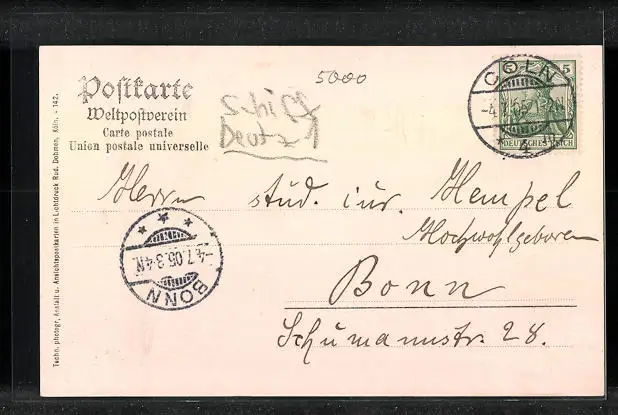 5000
Postkarte
Weltpostverein
Carte postale
Union postale universelle
Schiff
Deutz
CÖLN
5
DEUTSCHES REICH
Herrn stud. iur. Hempel
Hochwohlgeboren
Bonn
Schumannstr. 28.
-4.7.05.3-4N.
BONN
Techn. photogr. Anstalt u. Ansichtspostkarten in Lichtdruck Rud. Dobmen, Köln. - 142.